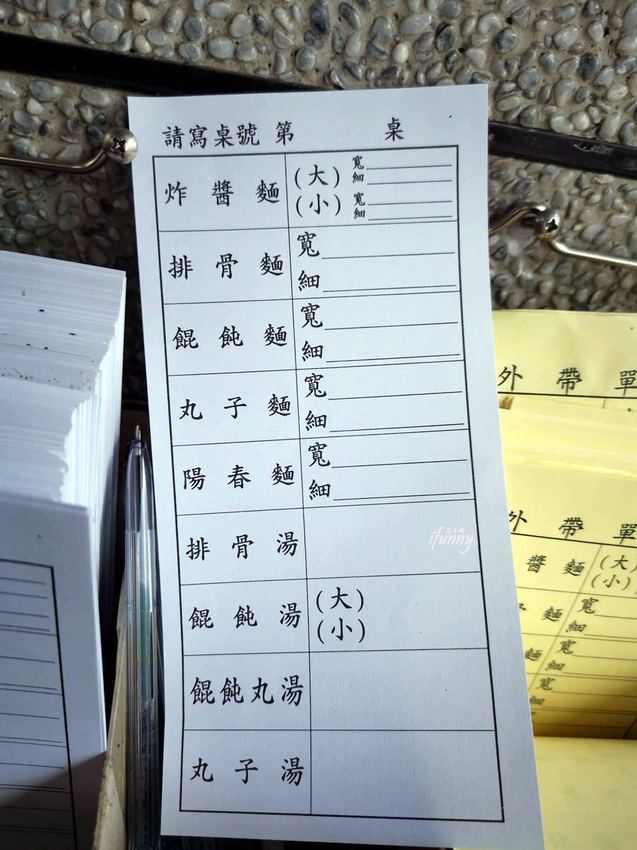 請寫桌號 第 桌
炸醬麵 (大) 寬 細
(小) 寬 細
排骨麵 寬
細
餛飩麵 寬
細
丸子麵 寬
細
陽春麵 寬
細
排骨湯
餛飩湯 (大)
(小)
餛飩丸湯
丸子湯
ifunny
外帶單
外帶單
醬麵 (大)
(小)
子麵 寬
細
麵 寬
細
寬
細